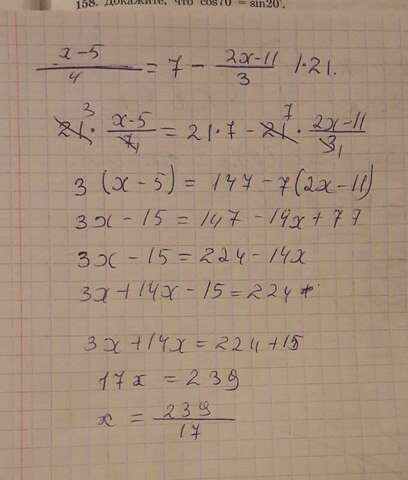 158. Докажите, что cos70° = sin20°.
x-5/4 = 7 - 2x-11/3 |·21.
3 7
21 · x-5/7 1 = 21·7 - 21 · 2x-11/3 1
3 (x-5) = 147-7(2x-11)
3x-15=147-14x+77
3x-15=224-14x
3x+14x-15=224
3x+14x=224+15
17x = 239
x = 239/17